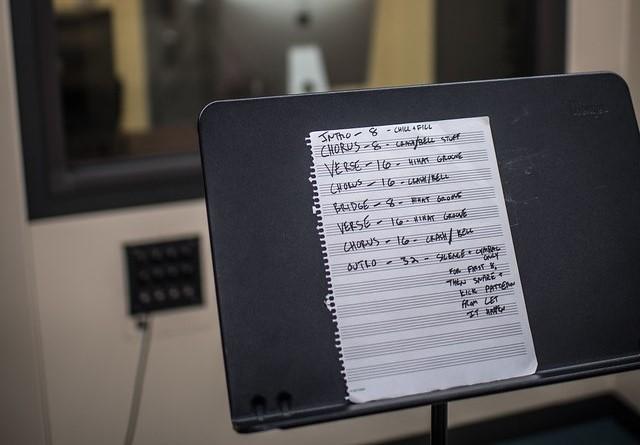 INTRO - 8 - CHILL + FILL
CHORUS - 8 - CRASH/BELL STUFF
VERSE - 16 - HIHAT GROOVE
CHORUS - 16 - CRASH/BELL
BRIDGE - 8 - HIHAT GROOVE
VERSE - 16 - HIHAT GROOVE
CHORUS - 16 - CRASH/BELL
OUTRO - 32 - SILENCE + CYMBAL
ONLY
FOR FIRST 8,
THEN SNARE +
KICK PATTERN
FROM LET
IT HAPPEN